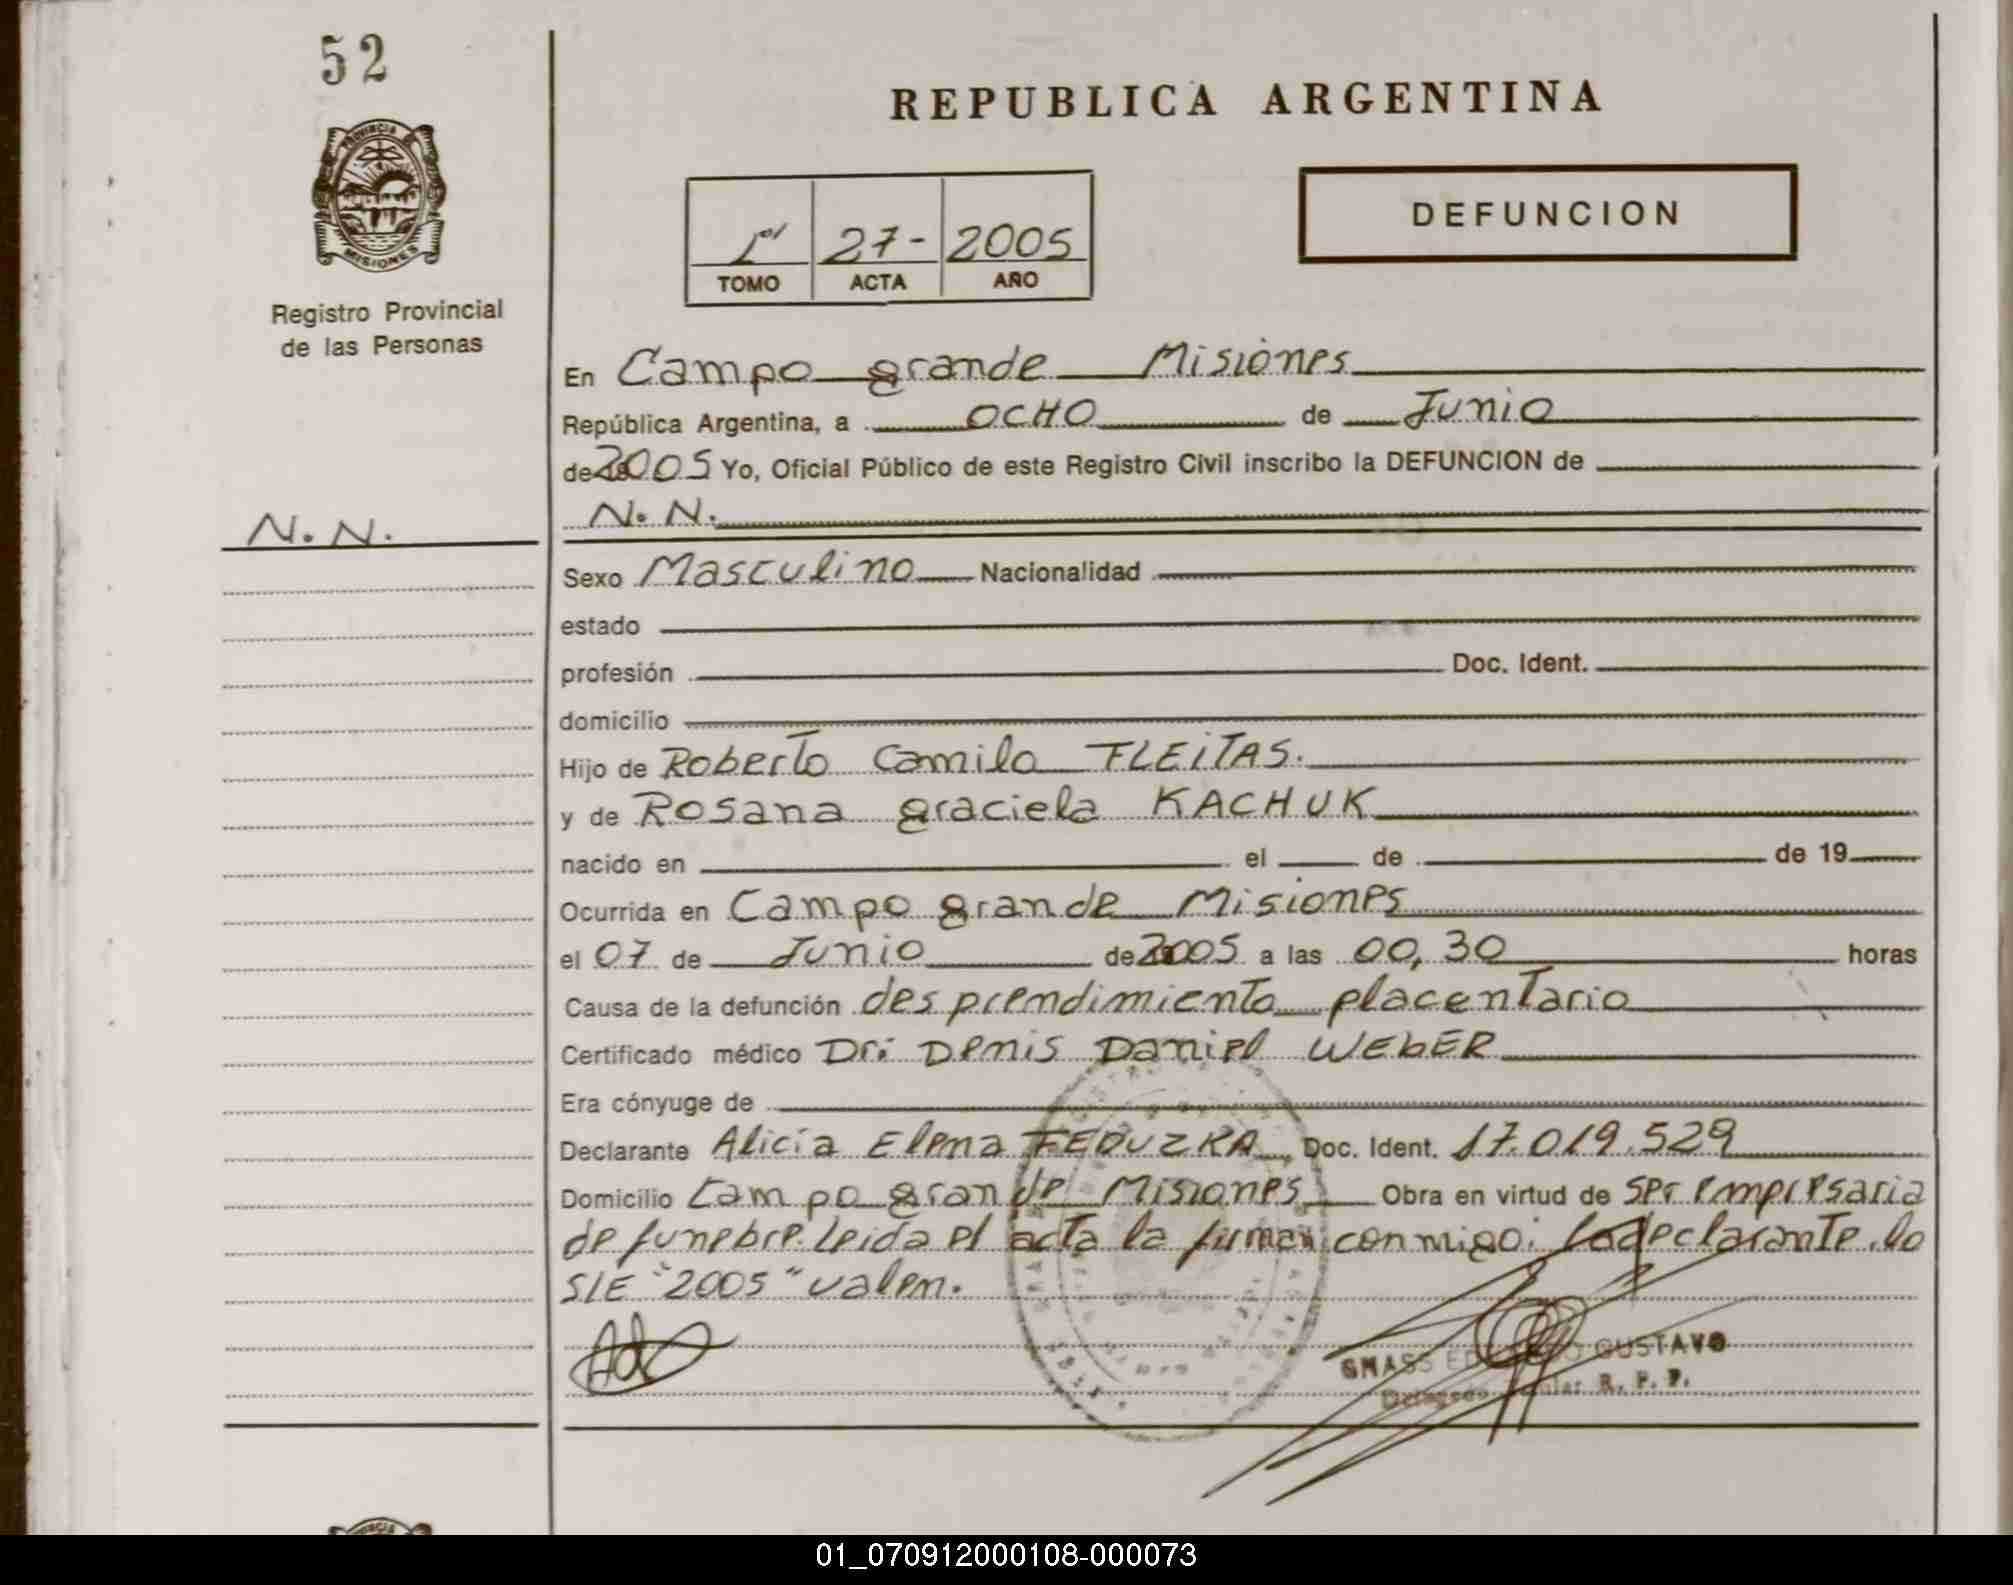 52
PROVINCIA
MISIONES
Registro Provincial
de las Personas
REPUBLICA ARGENTINA
1º 27- 2005
TOMO ACTA AÑO
DEFUNCION
En Campo grande Misiones
República Argentina, a OCHO de Junio
de 2005 Yo, Oficial Público de este Registro Civil inscribo la DEFUNCION de
N. N.
N. N.
Sexo Masculino Nacionalidad
estado
profesión Doc. Ident.
domicilio
Hijo de Roberto Camilo FLEiTAS.
y de Rosana graciela KACHUK
nacido en el de de 19
Ocurrida en Campo grande Misiones
el 07 de Junio de 2005 a las 00,30 horas
Causa de la defunción desprendimiento placentario
Certificado médico Dr: Denis Daniel WEbER
Era cónyuge de
Declarante Alicia Elena FEDUZKA Doc. Ident. 17.019.529
Domicilio Campo grande Misiones Obra en virtud de ser empresaria
de funebre. Leida el acta la firman conmigo: la declarante. lo
S/E "2005" valen.
GUSTAVO
R. P. P.
01_070912000108-000073